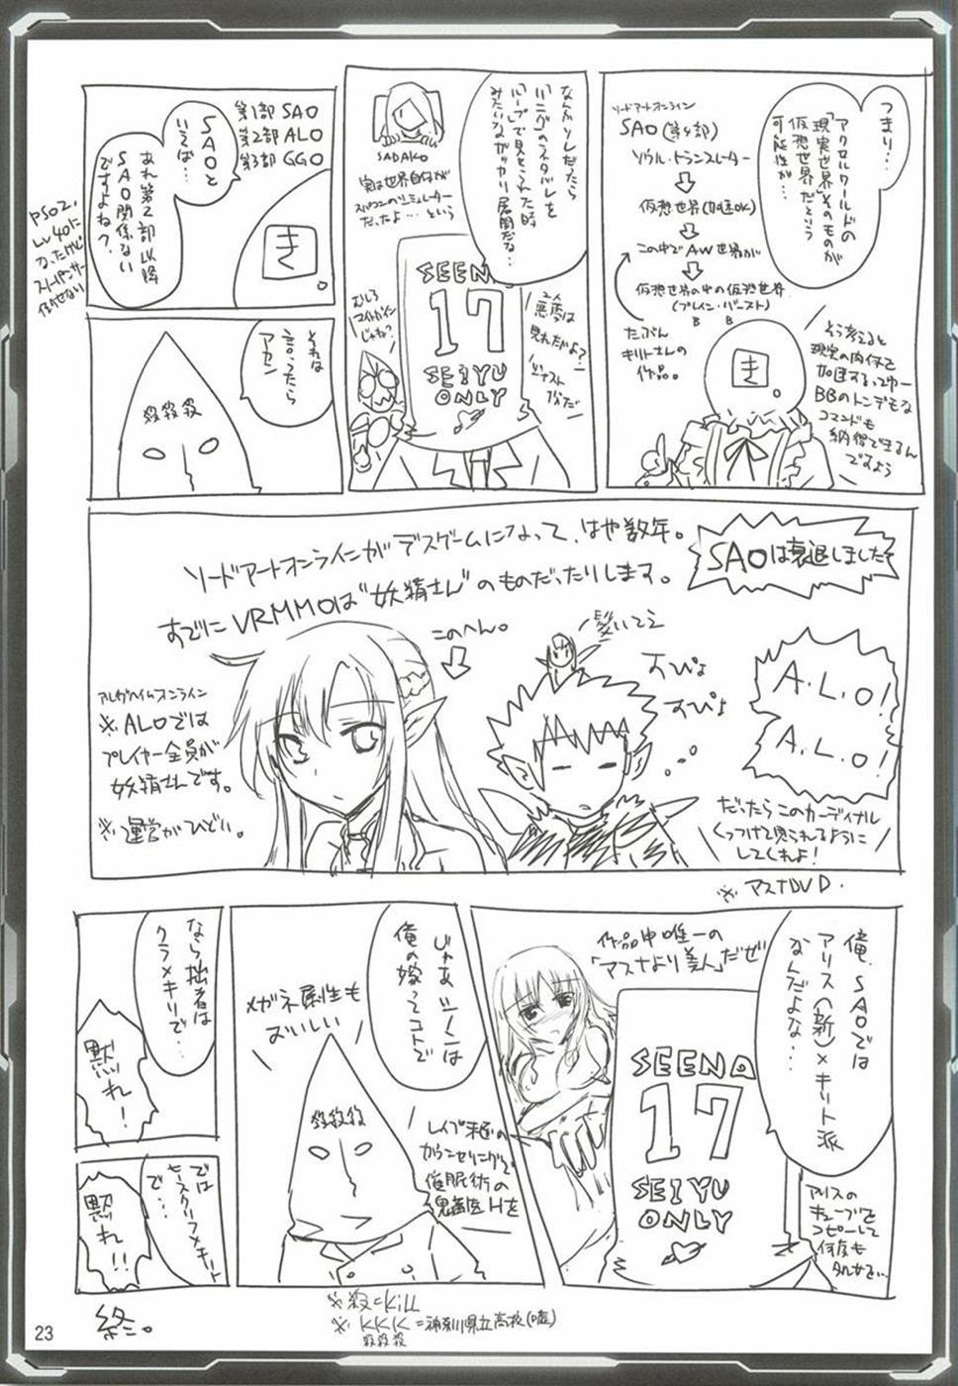 つまり…
アクセルワールドの
「現実世界」そのものが
仮想世界だという
可能性が…
ソードアートオンライン
SAO(第4部)
ソウル・トランスレーター
仮想世界(加速OK)
この中でAW世界が
仮想世界の中の仮想世界
(ブレイン・バースト)
B B
たぶん
キリトさんの
作品。
き。
そう考えると
現実の肉体を
加速するってゆー
BBのトンデモな
コマンドも
納得できるん
ですよう
なんかソレだったら
「リング」のネタバレを
「ループ」で見せられた時
みたいなガッカリ展開だな…
SADAKO
実は世界自体が
スパコンのシミュレーター
だったよ…という
SEENA
17
SEIYU
ONLY
第1部 SAO
第2部 ALO
第3部 GGO
SAOと
いえば…
あれ第2部以降
SAO関係ない
ですよね?
き。
PSO2、
Lv40に
なったけど
それは
言ったら
アカン
殺殺殺
SAOは衰退しました
ソードアートオンラインがデスゲームになって、はや数年。
すでにVRMMOは“妖精さん”のものだったりします。
このへん。
アルヴヘイムオンライン
※ALOでは
プレイヤー全員が
妖精さんです。
※運営がひどい。
髪いてえ
すぴょ
すぴょ
A.L.O!
A.L.O!
だったらこのカーディナル
くっつけて見られるように
してくれよ!
※アスナDVD.
俺、SAOでは
アリス(新)×キリト派
なんだよな…
作品中唯一の
「アスナより美人」だぜ
SEENA
17
SEIYU
ONLY
アリスの
キューブを
コピーして
何度も
じゃあシノンは
俺の嫁ってコトで
メガネ属性も
おいしい
殺殺殺
レイプ未遂の
カウンセリングで
催眠術の
鬼畜医Hを
なら拙者は
クラ×キリで…
黙れー!
では
ヒースクリフ×キリト
で…
黙れ!!
※殺=Kill
※KKK=神奈川県立高校(嘘)
殺殺殺
終ニ。
23